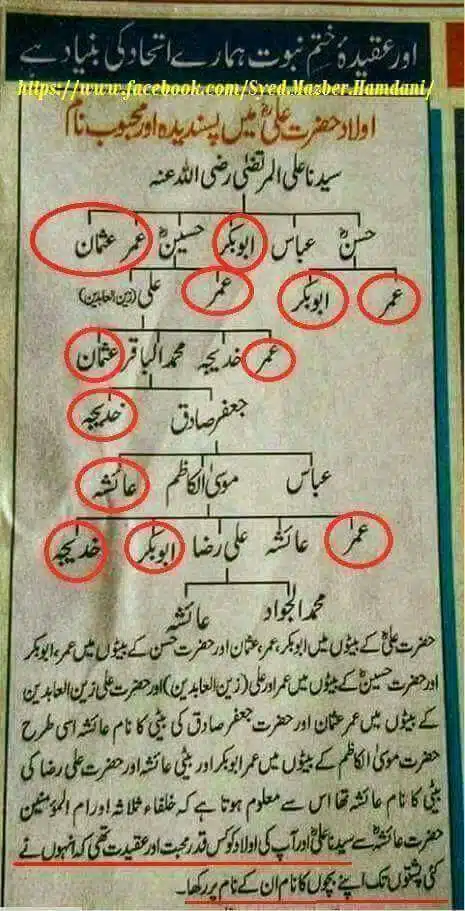 اور عقیدۂ ختم نبوت ہمارے اتحاد کی بنیاد ہے
https://www.facebook.com/Syed.Mazher.Hamdani/
اولاد حضرت علیؓ میں پسندیدہ اور محبوب نام
سیدنا علی المرتضیٰ رضی اللہ عنہ
حسنؓ عباس ابوبکر حسینؓ عمر عثمان
عمر ابوبکر عمر علی (زین العابدین)
عمر خدیجہ محمد الباقر عثمان
جعفر صادق خدیجہ
عباس موسیٰ الکاظم عائشہ
عمر عائشہ علی رضا ابوبکر خدیجہ
محمد الجواد عائشہ
حضرت علیؓ کے بیٹوں میں ابوبکر، عمر، عثمان اور حضرت حسن کے بیٹوں میں عمر، ابوبکر
اور حضرت حسینؓ کے بیٹوں میں عمر اور علی (زین العابدین) اور حضرت علی زین العابدین
کے بیٹوں میں عمر عثمان اور حضرت جعفر صادق کی بیٹی کا نام عائشہ اسی طرح
حضرت موسیٰ الکاظم کے بیٹوں میں عمر ابوبکر اور بیٹی عائشہ اور حضرت علی رضا کی
بیٹی کا نام عائشہ تھا اس سے معلوم ہوتا ہے کہ خلفاء ثلاثہ اور ام المؤمنین
حضرت عائشہؓ سے سیدنا علیؓ اور آپ کی اولاد کو کس قدر محبت اور عقیدت تھی کہ انہوں نے
کئی پشتوں تک اپنے بچوں کا نام ان کے نام پر رکھا۔